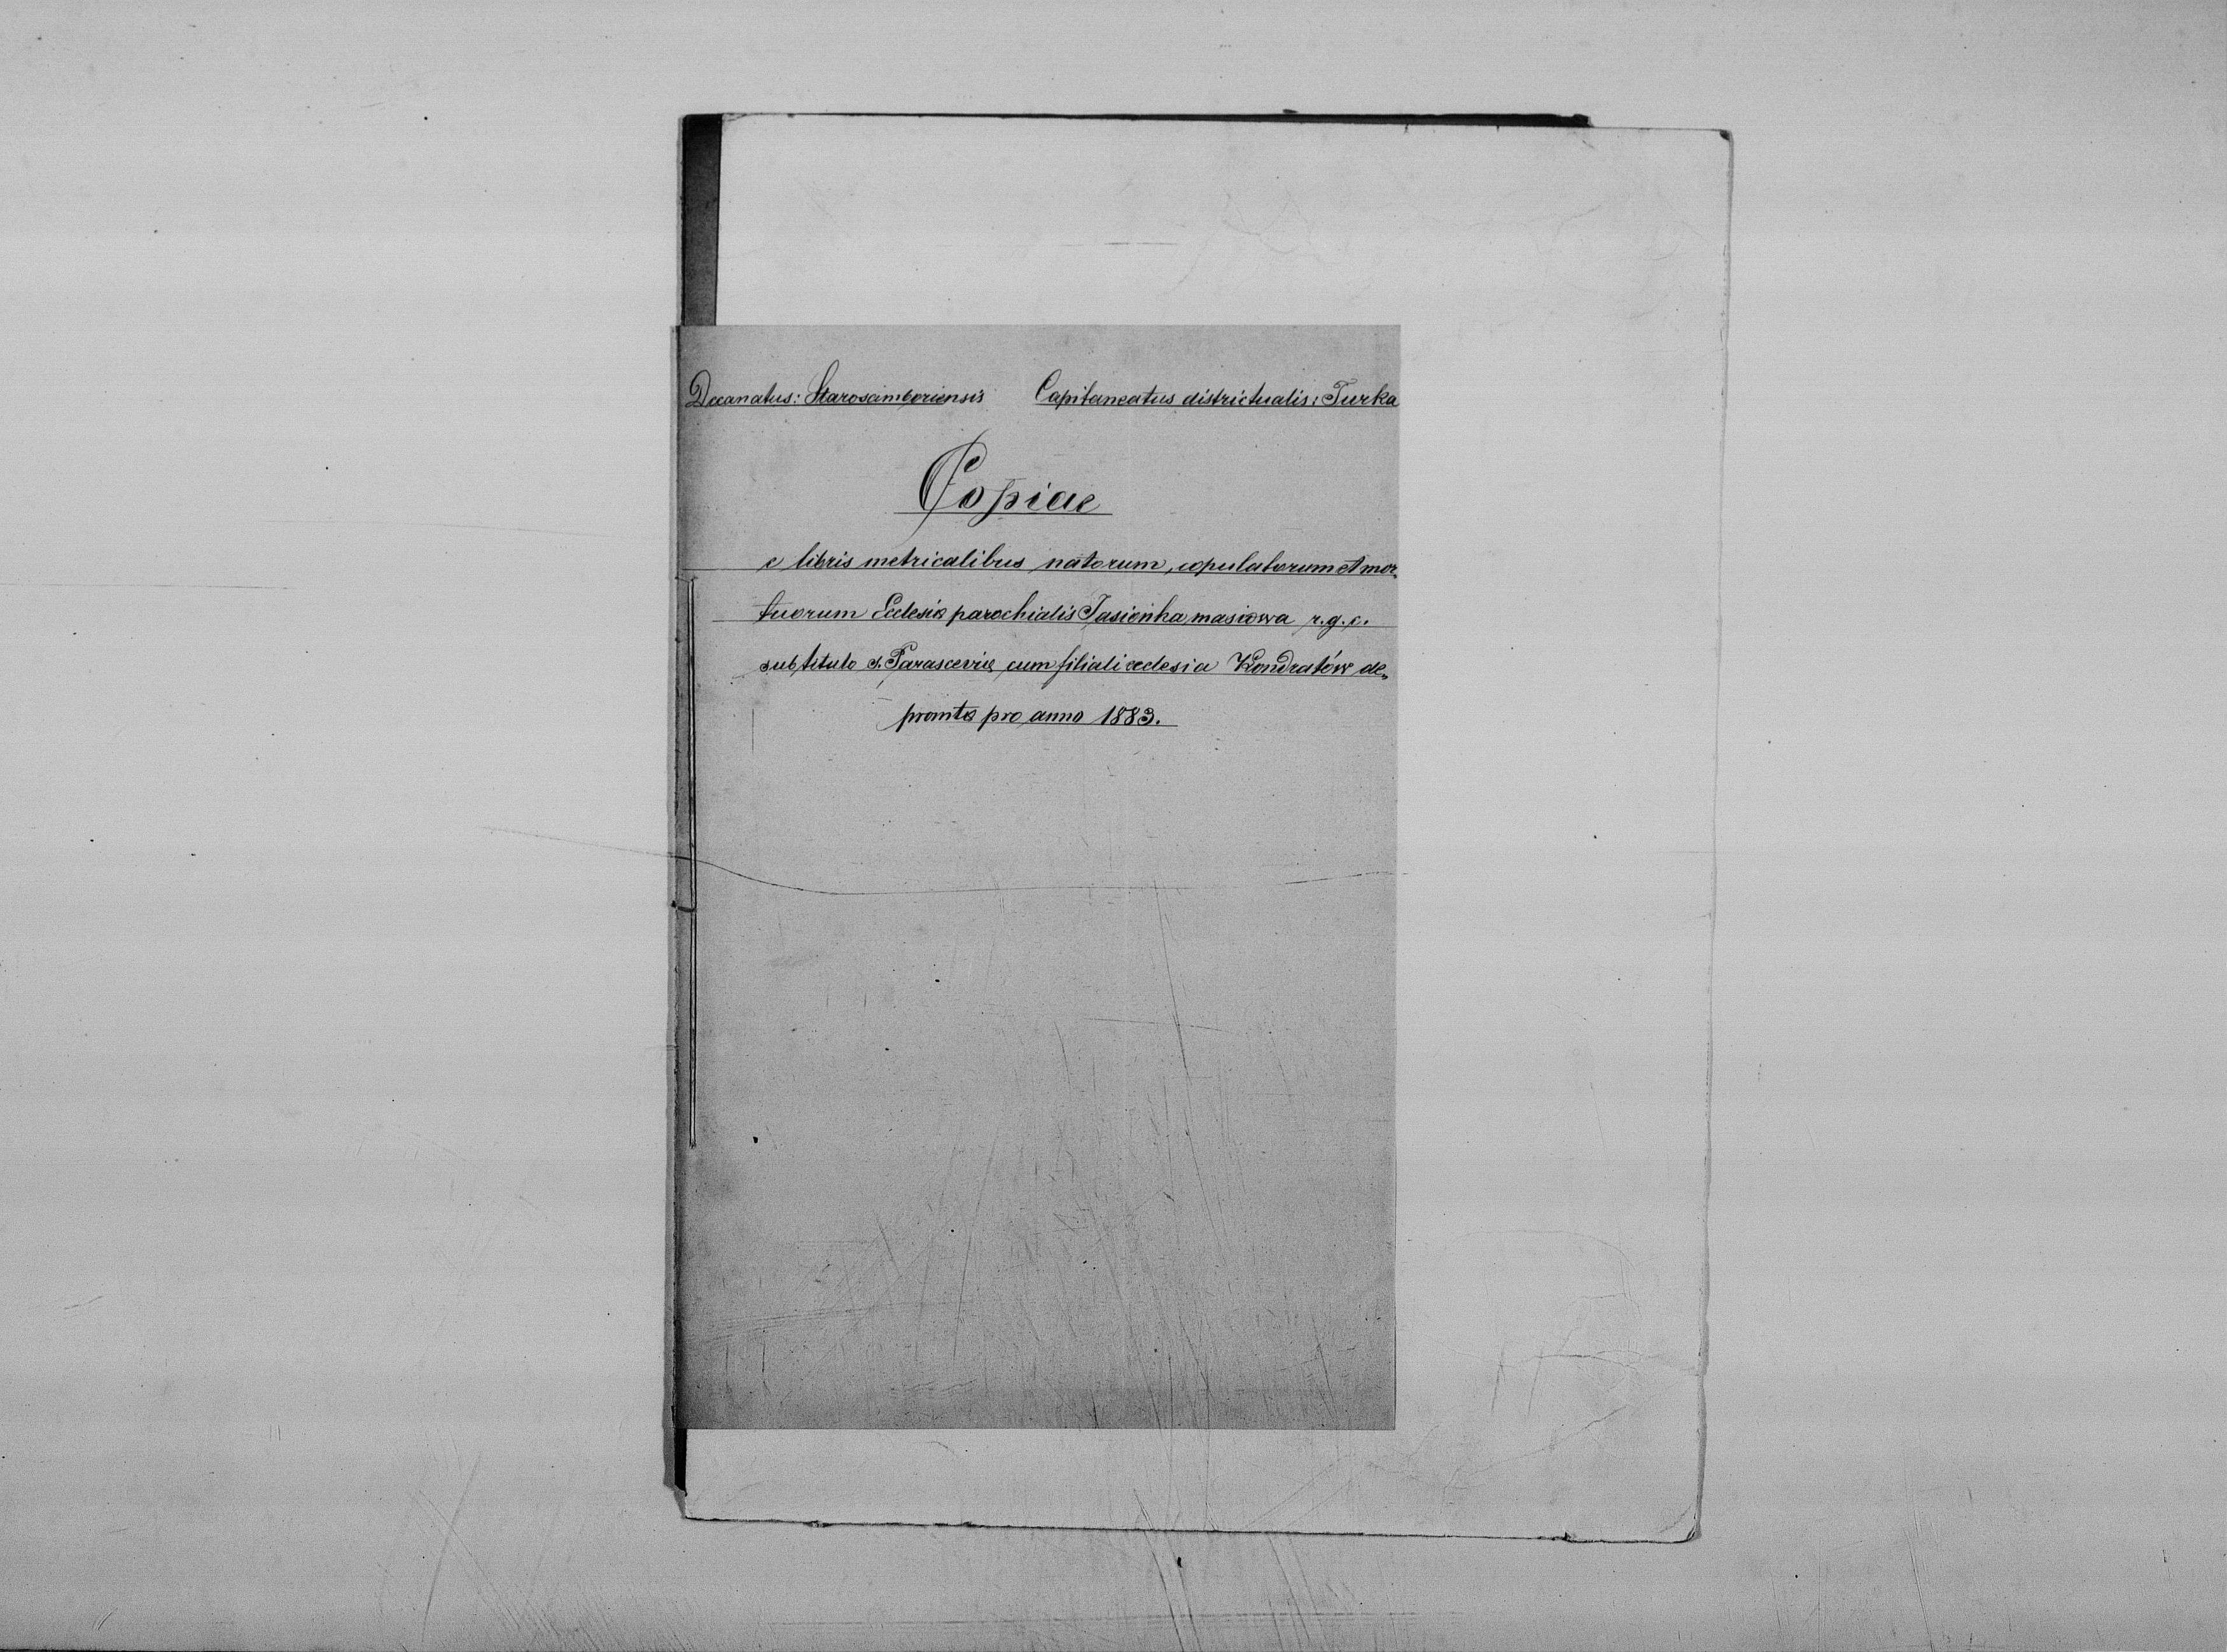 Decanatus: Starosamboriensis Capitaneatus districtualis: Turka
Copiae
e libris metricalibus natorum, copulatorum et mor-
tuorum Ecclesiæ parochialis Jasionka masiowa r.g.c.
sub titulo s. Parasceviæ cum filiali ecclesia Kondratów de-
promtæ pro anno 1883.